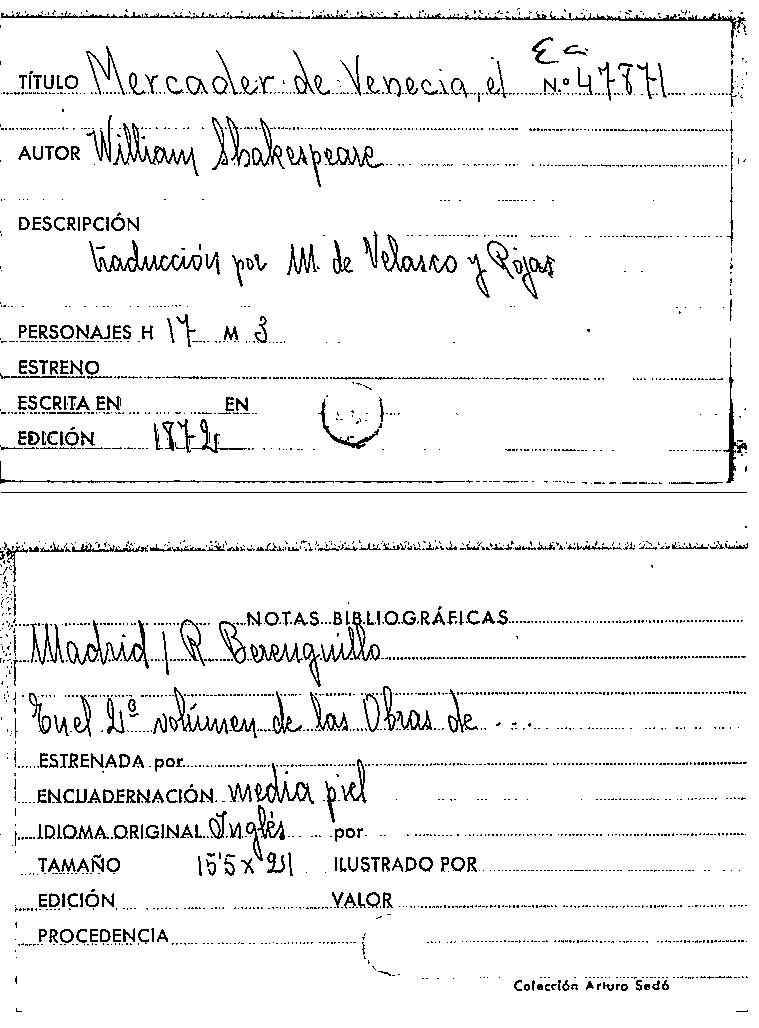 Ea
TÍTULO Mercader de Venecia, el N.º 47871
AUTOR William Shakespeare
DESCRIPCIÓN
traducción por M. de Velasco y Rojas
PERSONAJES H 17 M 3
ESTRENO
ESCRITA EN EN
EDICIÓN 1872
NOTAS BIBLIOGRÁFICAS
Madrid / R Berenguillo
En el 2º volúmen de las Obras de ...
ESTRENADA por
ENCUADERNACIÓN media piel
IDIOMA ORIGINAL Inglés por
TAMAÑO 15'5 x 21 ILUSTRADO POR
EDICIÓN VALOR
PROCEDENCIA
Colección Arturo Sedó